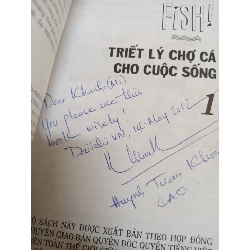 FiSH!
TRIẾT LÝ CHỢ CÁ
CHO CUỘC SỐNG
1
Dear Khanh,
You please use this
book wisely!
VN, 14-May 2012
Huỳnh Tuấn Khoa
CAO
SÁCH NÀY ĐƯỢC XUẤT BẢN THEO HỢP ĐỒNG
CHUYỂN GIAO BẢN QUYỀN ĐỘC QUYỀN TIẾNG VIỆT
TRÊN TOÀN THẾ GIỚI